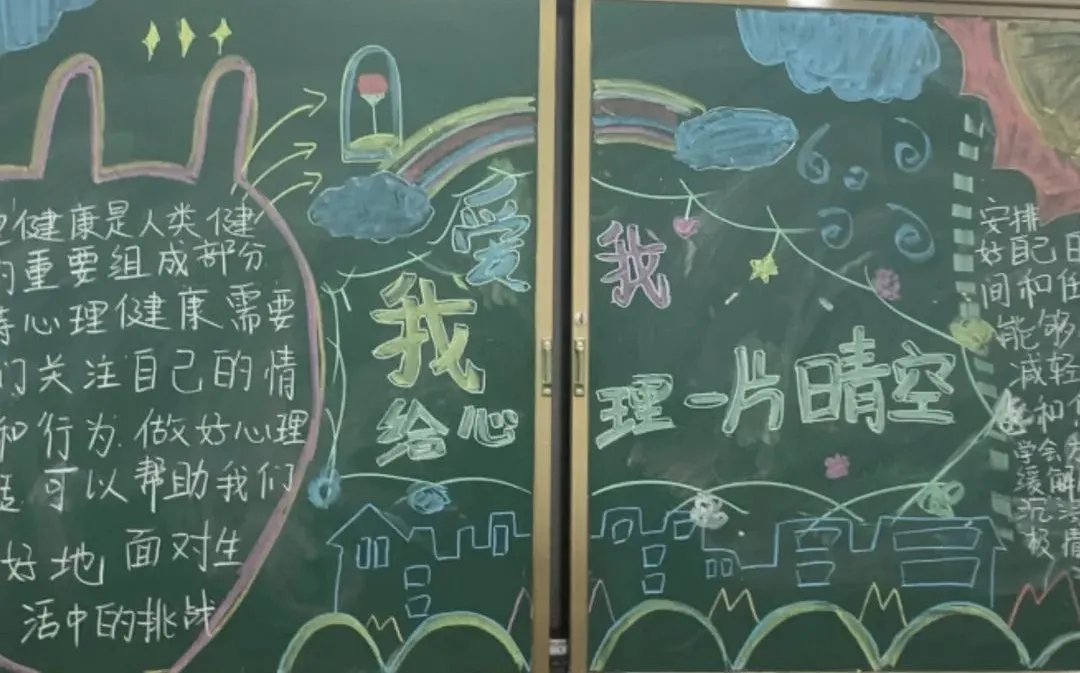 健康是人类健
重要组成部分
心理健康需要
们关注自己的情
和行为.做好心理
可以帮助我们
好地面对生
活中的挑战
我爱我
给心理一片晴空
安排
好自己
间和任
能够
减轻
和
学会
缓解
沉
极情